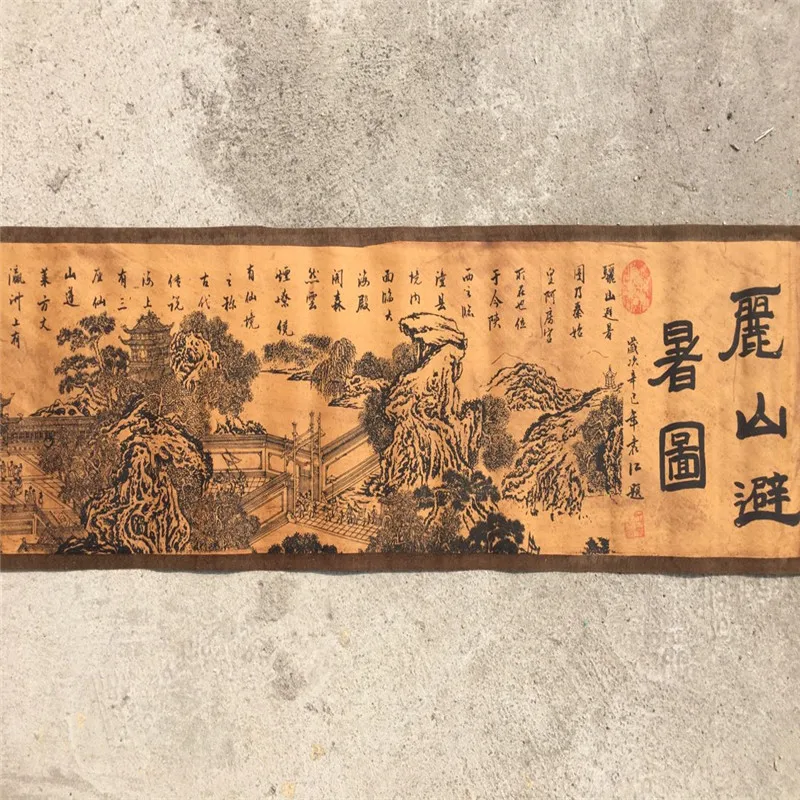 麗山避
暑圖
驪山避暑
圖乃秦始
皇阿房宮
所在也位
于今陝
西之臨
潼县
境内
面临大
海殿
閣森
然雲
煙燎繞
有仙境
之稱
古代
传说
海上
有三
座仙
山蓬
莱方丈
瀛洲上有
歲次辛巳年袁江題